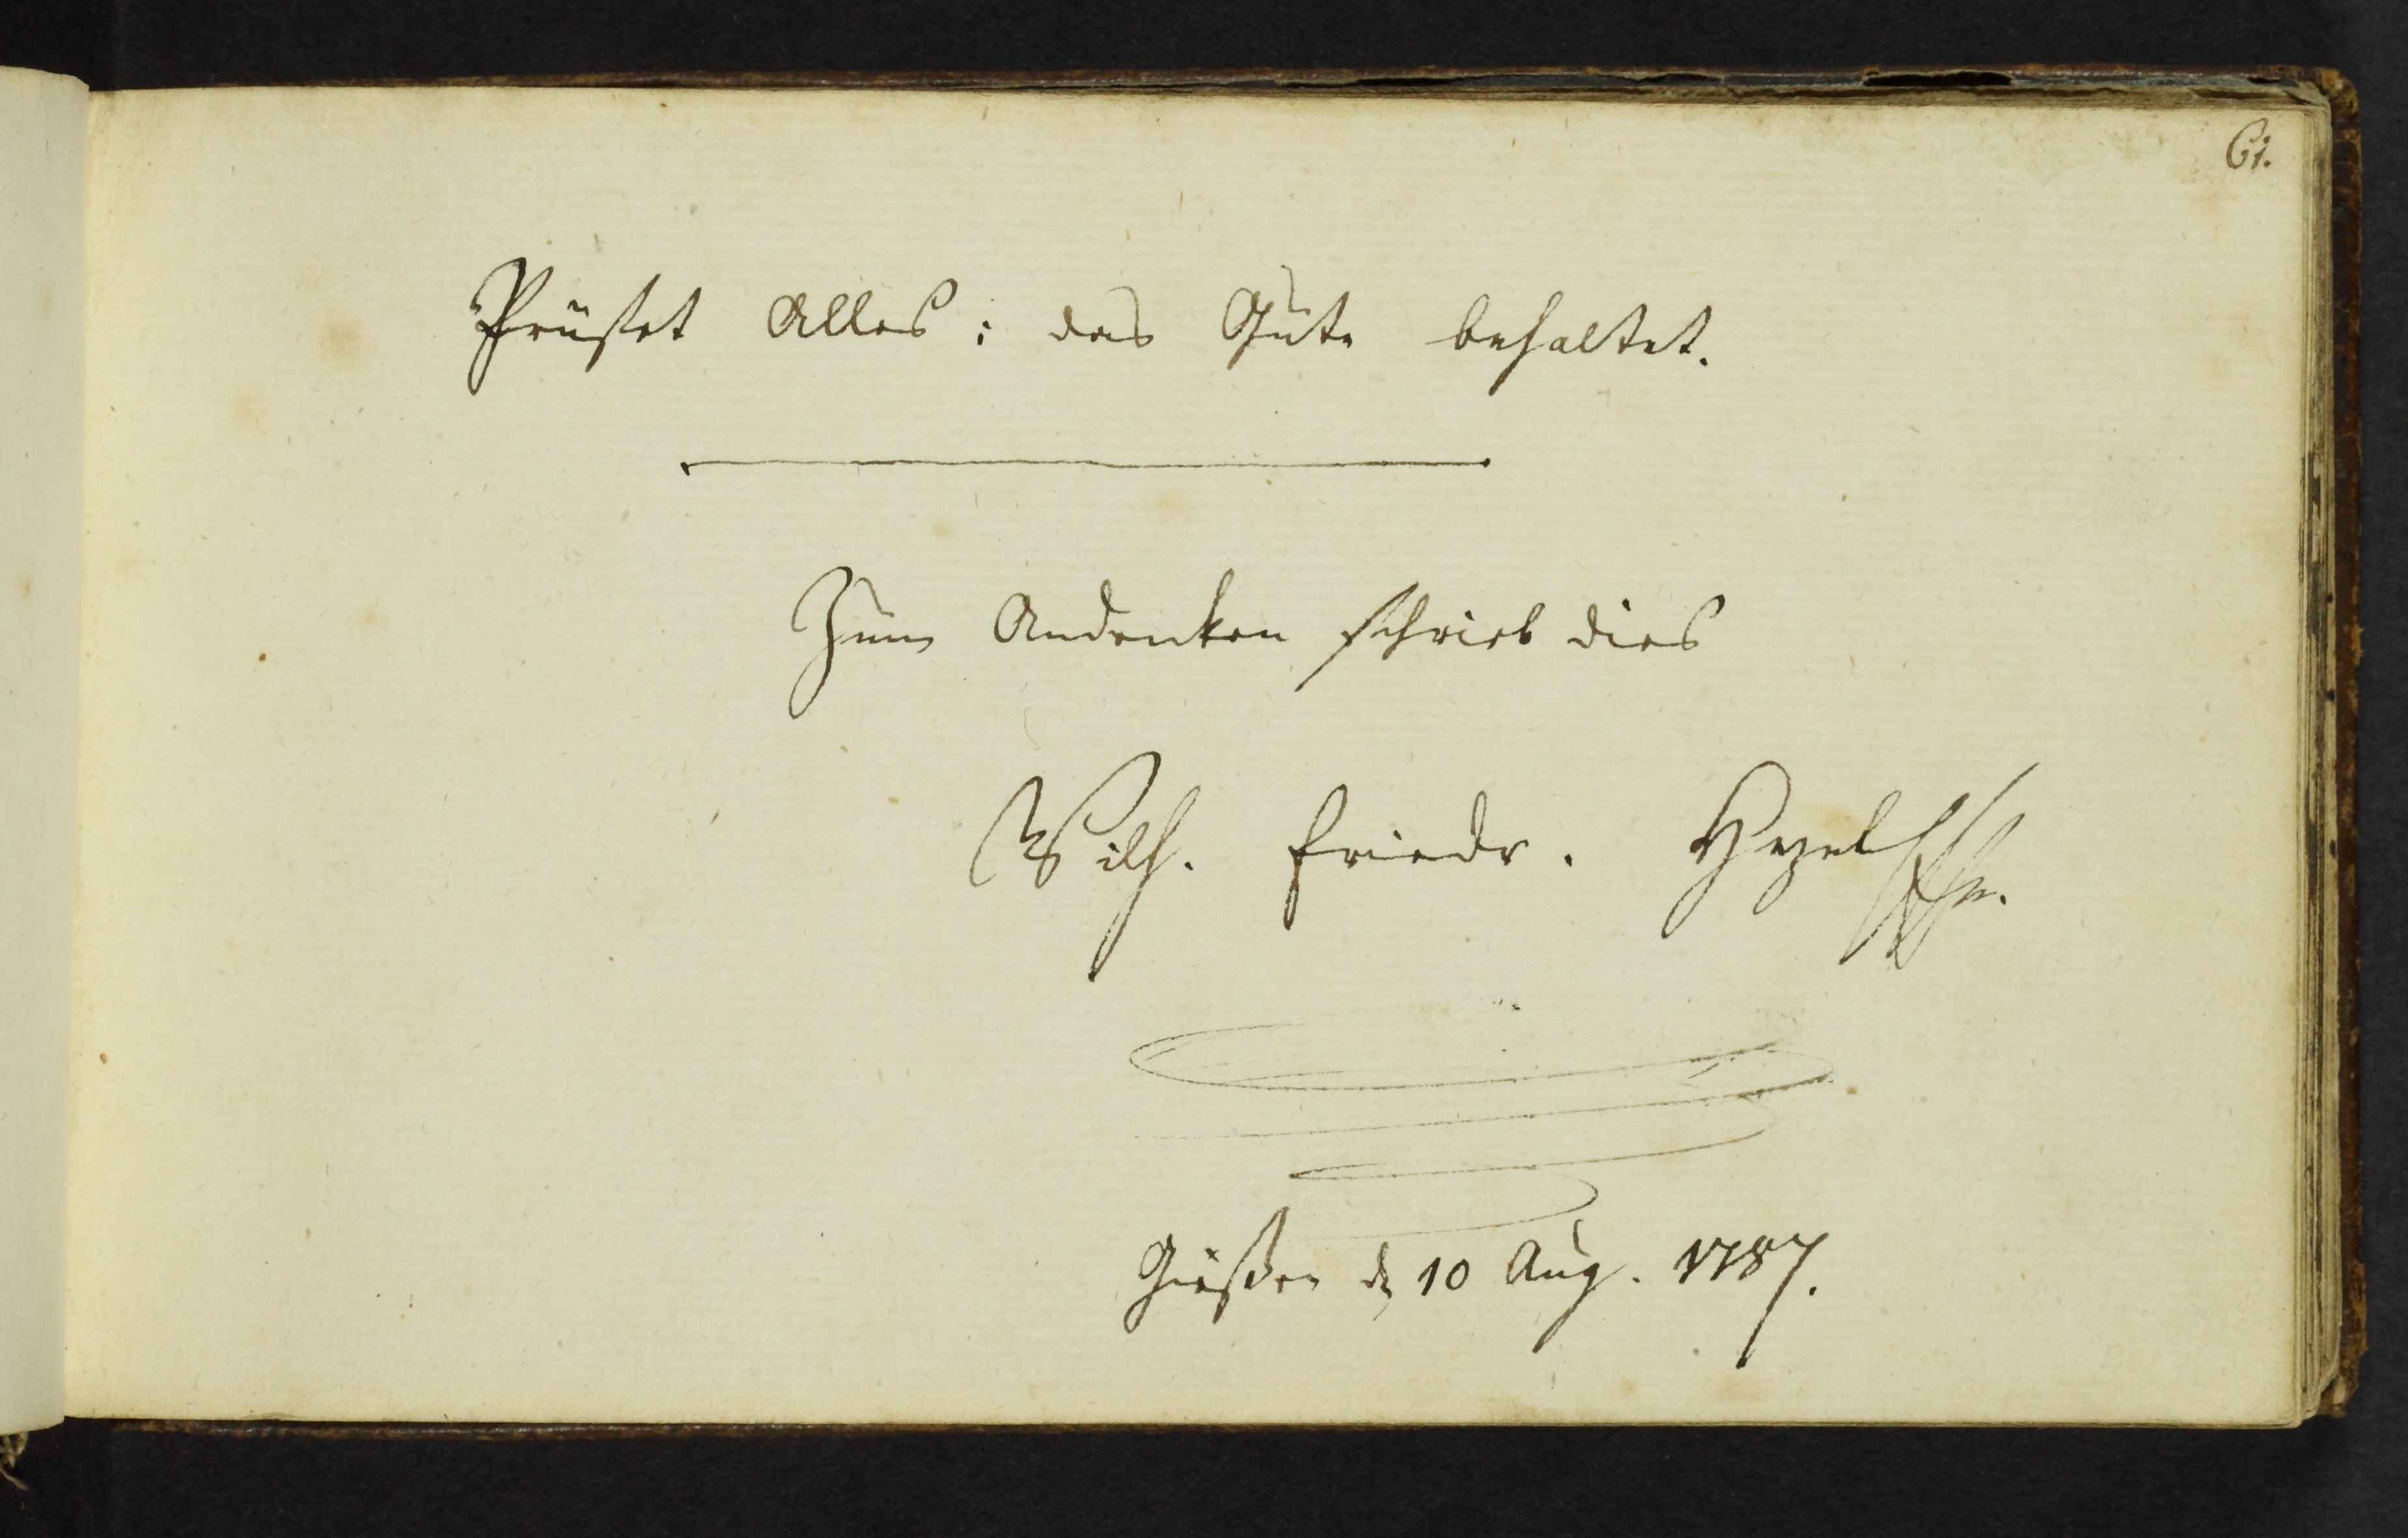 61.
Prüfet Alles; das Gute behaltet.
Zum Andenken schrieb dies
Wilh. Friedr. Hezel
Gießen d 10 Aug. 1787.